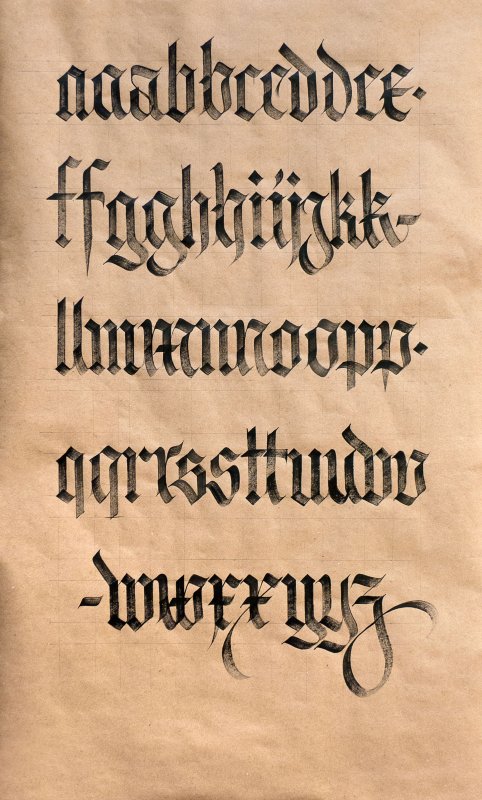 aaabbccddee·
ffgghhiijjkk-
llmmnnoopp·
qqrrssttuuvv
-wwxxyyz